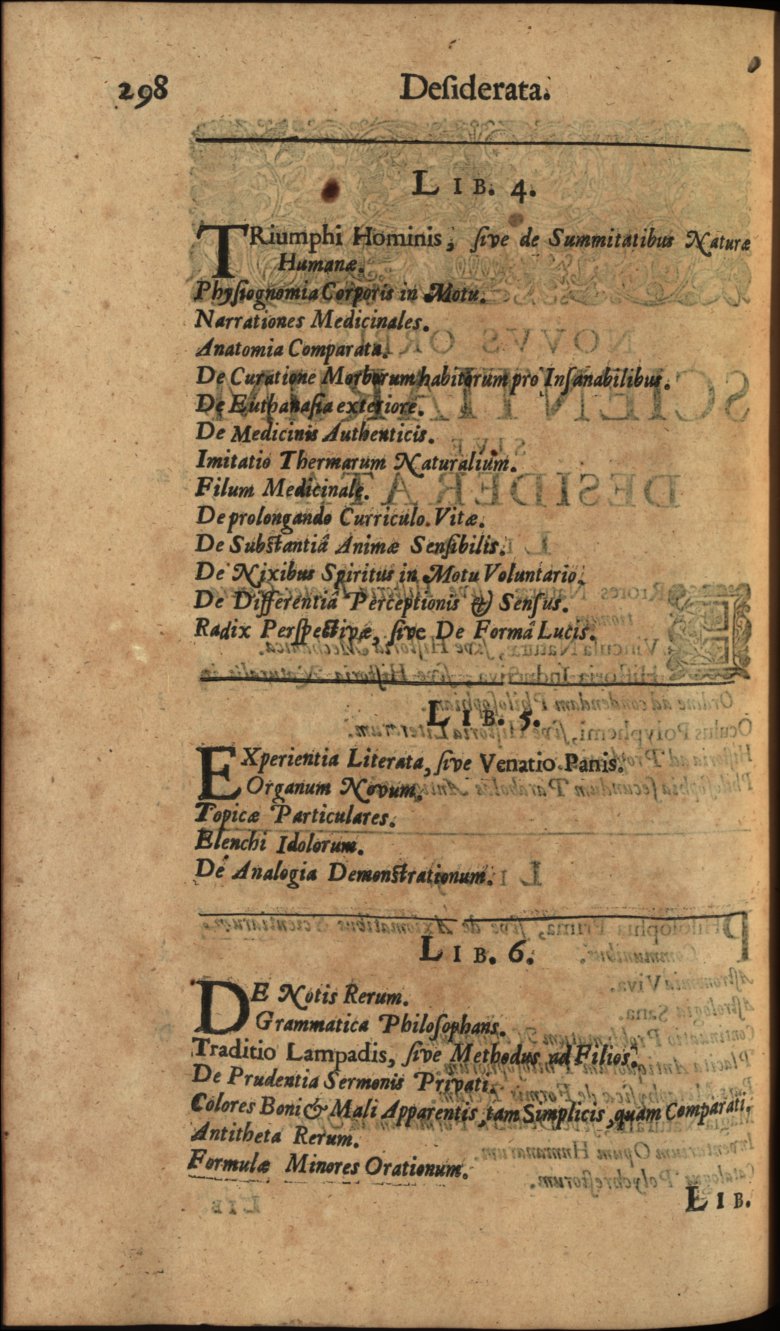 298 Desiderata.
LIB. 4.
TRiumphi Hominis, sive de Summitatibus Naturæ
Humanæ.
Physiognomia Corporis in Motu.
Narrationes Medicinales.
Anatomia Comparata.
De Curatione Morborum habitorum pro Insanabilibus.
De Euthanasia exteriore.
De Medicinis Authenticis.
Imitatio Thermarum Naturalium.
Filum Medicinale.
De prolongando Curriculo. Vitæ.
De Substantiâ Animæ Sensibilis.
De Nixibus Spiritus in Motu Voluntario.
De Differentiâ Perceptionis & Sensus.
Radix Perspectivæ, sive De Formâ Lucis.
LIB. 5.
EXperientia Literata, sive Venatio Panis.
Organum Novum.
Topicæ Particulares.
Elenchi Idolorum.
De Analogia Demonstrationum.
LIB. 6.
DE Notis Rerum.
Grammatica Philosophans.
Traditio Lampadis, sive Methodus ad Filios.
De Prudentia Sermonis Privati.
Colores Boni & Mali Apparentis, tam Simplicis, quàm Comparati.
Antitheta Rerum.
Formulæ Minores Orationum.
LIB.